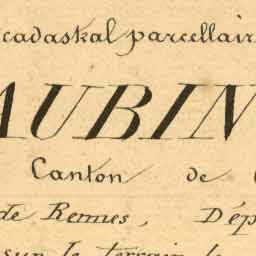 cadastral parcellair
AUBIN
Canton de
de Rennes, Dép
sur le terrain